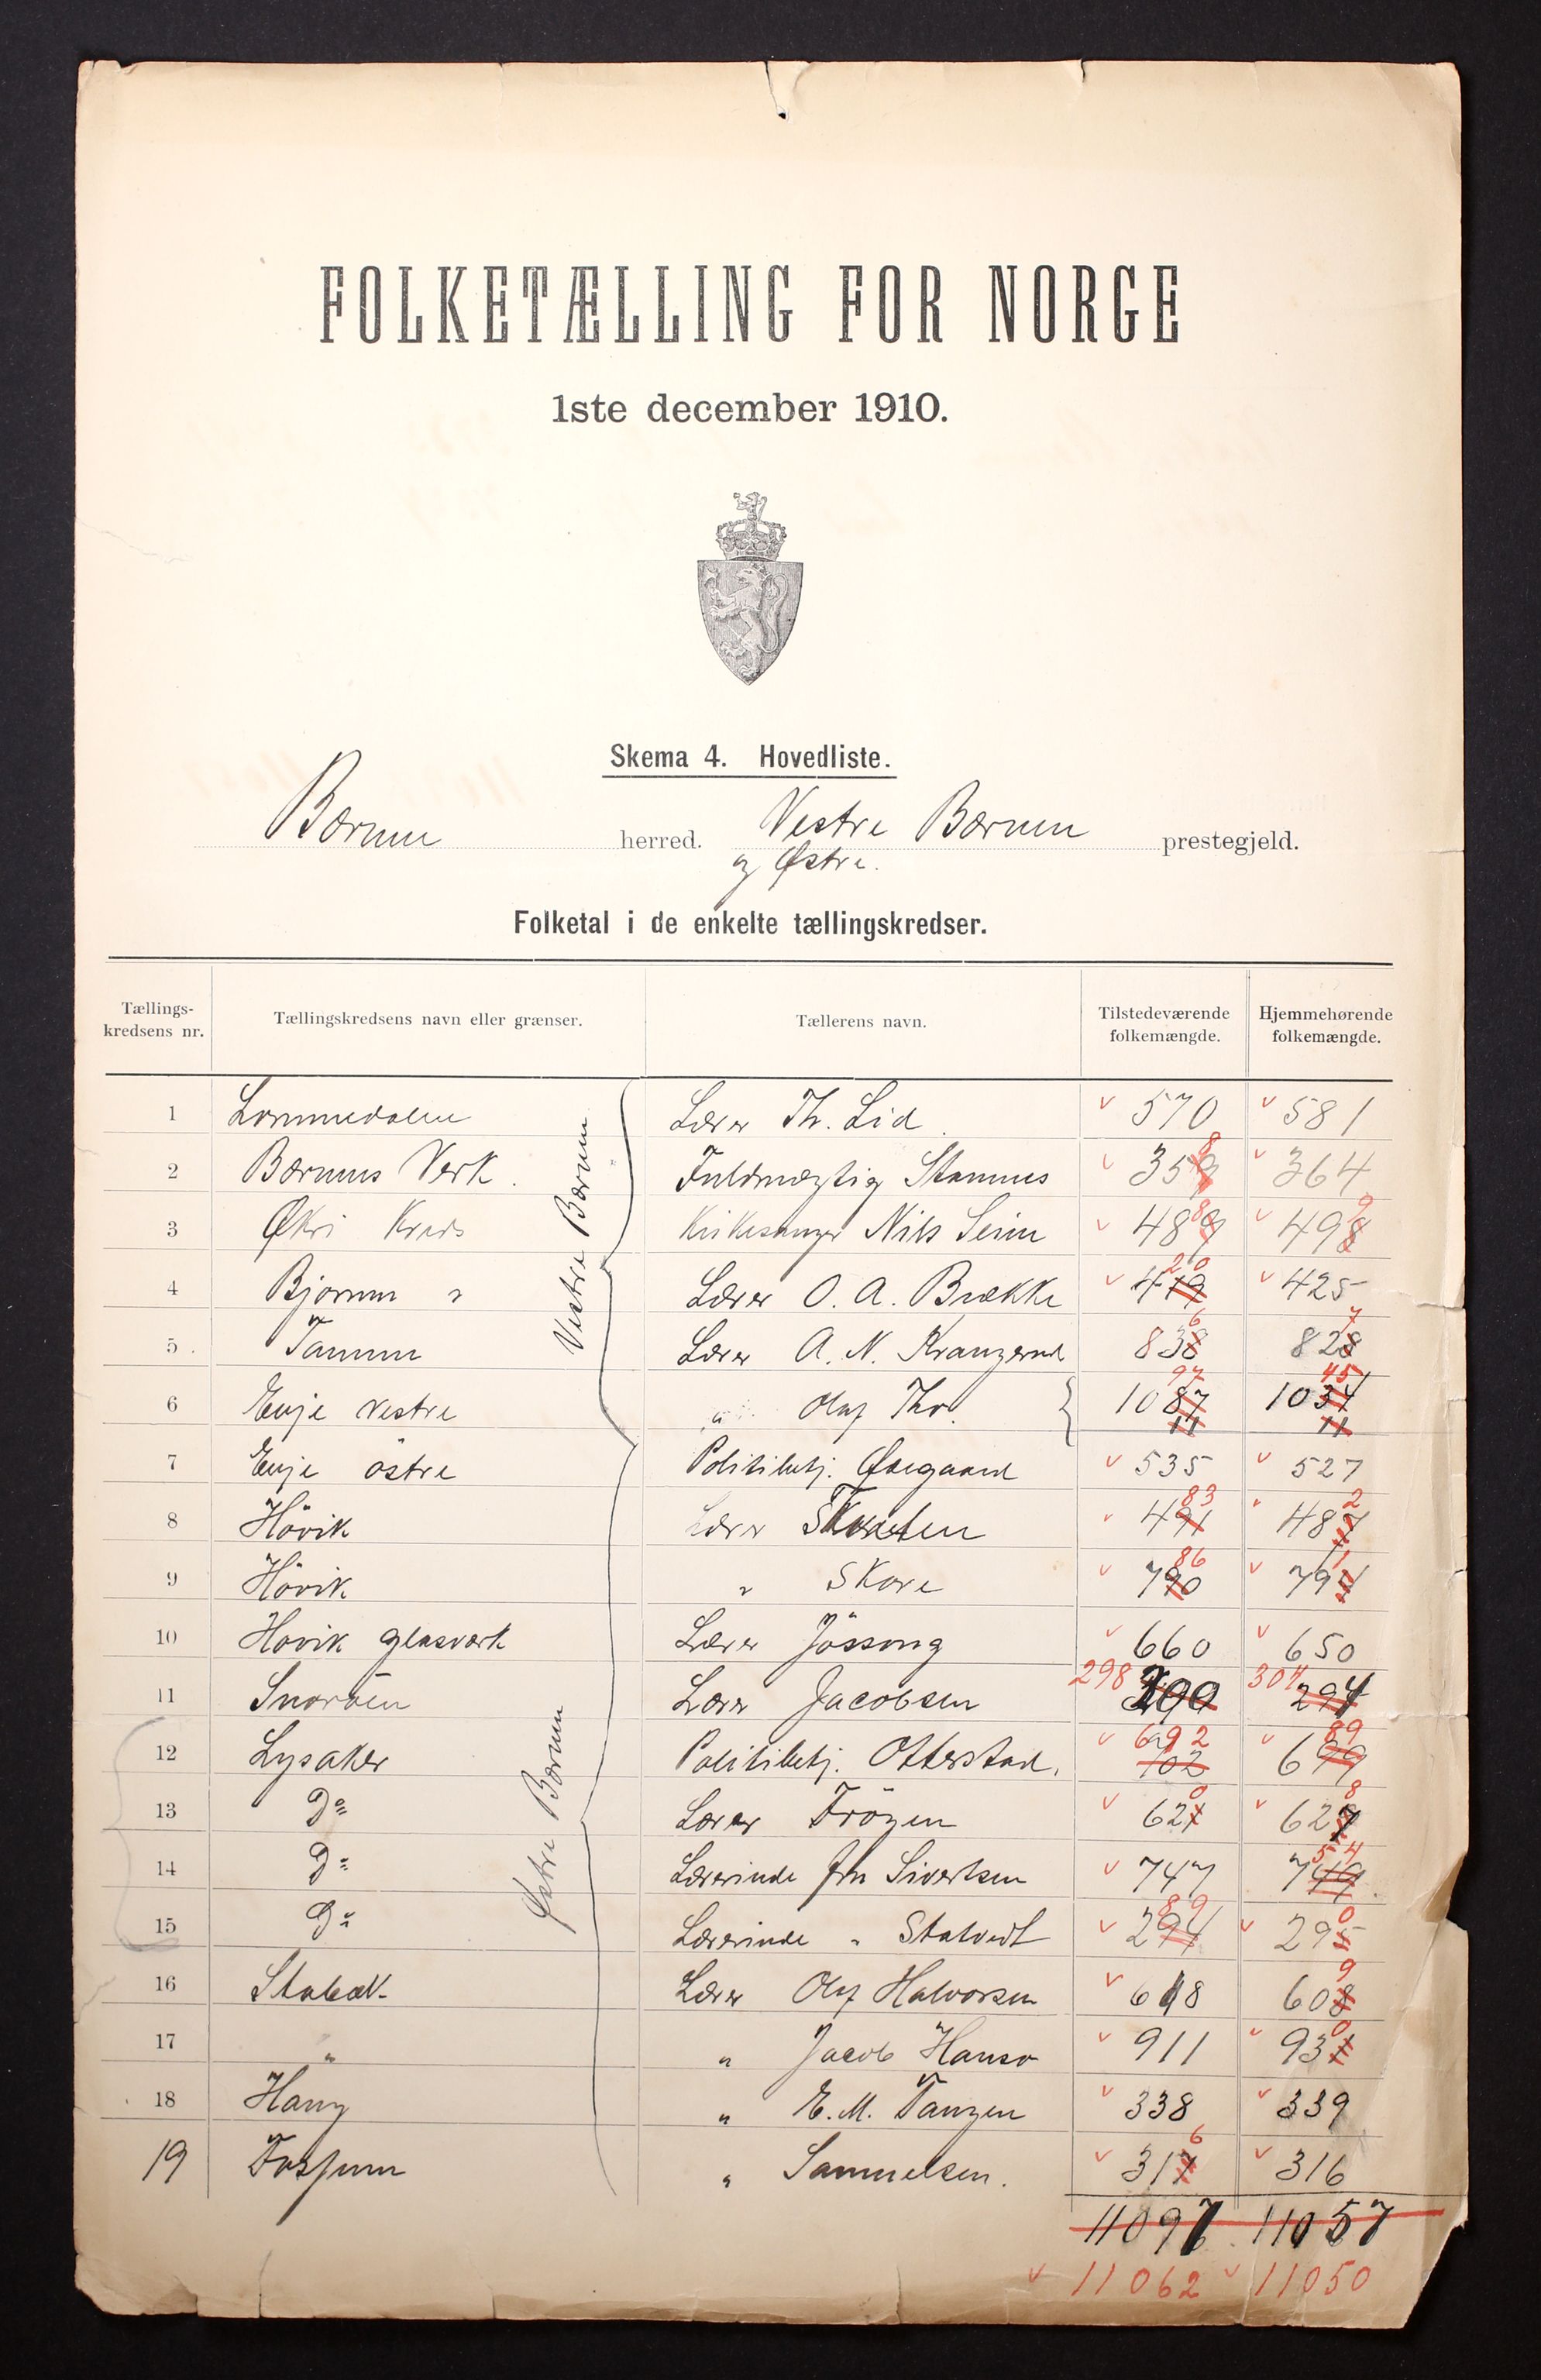 FOLKETÆLLING FOR NORGE
1ste december 1910.
Skema 4. Hovedliste.
Bærum herred. Vestre Bærum prestegjeld.
og Østre.
Folketal i de enkelte tællingskredser.
Tællings-kredsens nr. Tællingskredsens navn eller grænser. Tællerens navn. Tilstedeværende folkemængde. Hjemmehørende folkemængde.
Vestre Bærum
1 Lommedalen Lærer Th. Lid. 570 581
2 Bærums Verk. Fuldmægtig Stamnes 358 364
3 Økri Kreds Kirkesanger Nils Seim 488 499
4 Bjørum " Lærer O. A. Brække 420 425
5 Tanum Lærer A. N. 836 827
6 Enje vestre " Olaf Tho. 1097 1045
7 Enje østre Politibetj. Øxegaard 535 527
Østre Bærum
8 Hövik Lærer 483 482
9 Hövik " Skare 786 791
10 Hövik glasværk Lærer Jössong 660 650
11 Snaröen Lærer Jacobsen 298 304
12 Lysaker Politibetj. Otterstad. 692 689
13 Do Lærer Fröyen 620 628
14 Do Lærerinde frk Sivertsen 747 754
15 Do Lærerinde " Stalvedt 289 290
16 Stabæk Lærer Olaf Halvorsen 618 609
17 " " Jacob Hanso 911 930
18 Haug " E. M. Tangen 338 339
19 Fossum " Samuelsen. 316 316
11097 11057
11062 11050